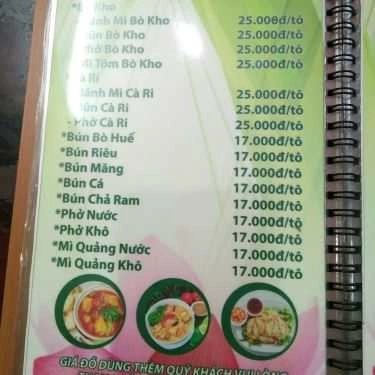 Kho
Bánh Mì Bò Kho 25.000đ/tô
Bún Bò Kho 25.000đ/tô
Phở Bò Kho 25.000đ/tô
Mì Tôm Bò Kho 25.000đ/tô
Cà Ri
Bánh Mì Cà Ri 25.000đ/tô
Bún Cà Ri 25.000đ/tô
- Phở Cà Ri 25.000đ/tô
*Bún Bò Huế 17.000đ/tô
*Bún Riêu 17.000đ/tô
*Bún Măng 17.000đ/tô
*Bún Cá 17.000đ/tô
*Bún Chả Ram 17.000đ/tô
*Phở Nước 17.000đ/tô
*Phở Khô 17.000đ/tô
*Mì Quảng Nước 17.000đ/tô
*Mì Quảng Khô 17.000đ/tô
GIÁ ĐỒ DÙNG THÊM QUÝ KHÁCH VUI LÒNG